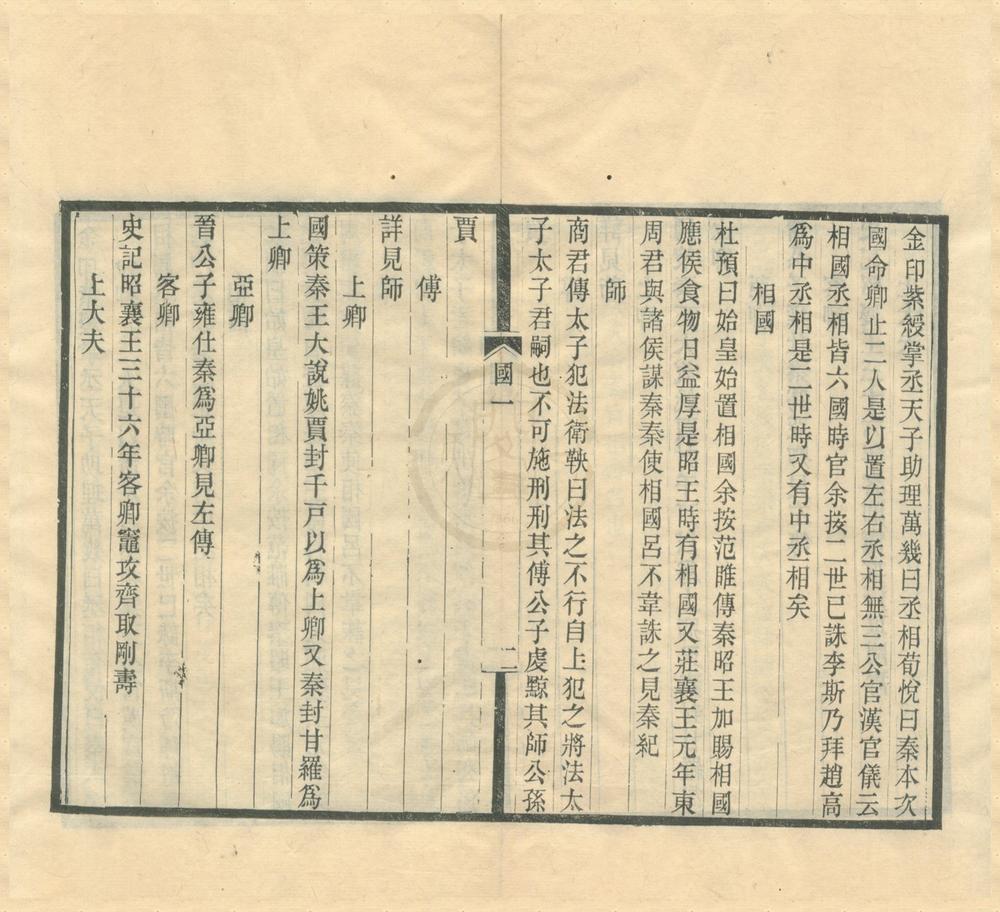 金印紫綬掌丞天子助理萬幾曰丞相荀悅曰秦本次
國命卿止二人是以置左右丞相無三公官漢官儀云
相國丞相皆六國時官余按二世已誅李斯乃拜趙高
為中丞相是二世時又有中丞相矣
相國
杜預曰始皇始置相國余按范睢傳秦昭王加賜相國
應侯食物日益厚是昭王時有相國又莊襄王元年東
周君與諸侯謀秦秦使相國呂不韋誅之見秦紀
師
商君傳太子犯法衛鞅曰法之不行自上犯之將法太
子太子君嗣也不可施刑刑其傅公子虔黥其師公孫
國一
二
賈
傅
詳見師
上卿
國策秦王大說姚賈封千戶以為上卿又秦封甘羅為
上卿
亞卿
晉公子雍仕秦為亞卿見左傳
客卿
史記昭襄王三十六年客卿竈攻齊取剛壽
上大夫